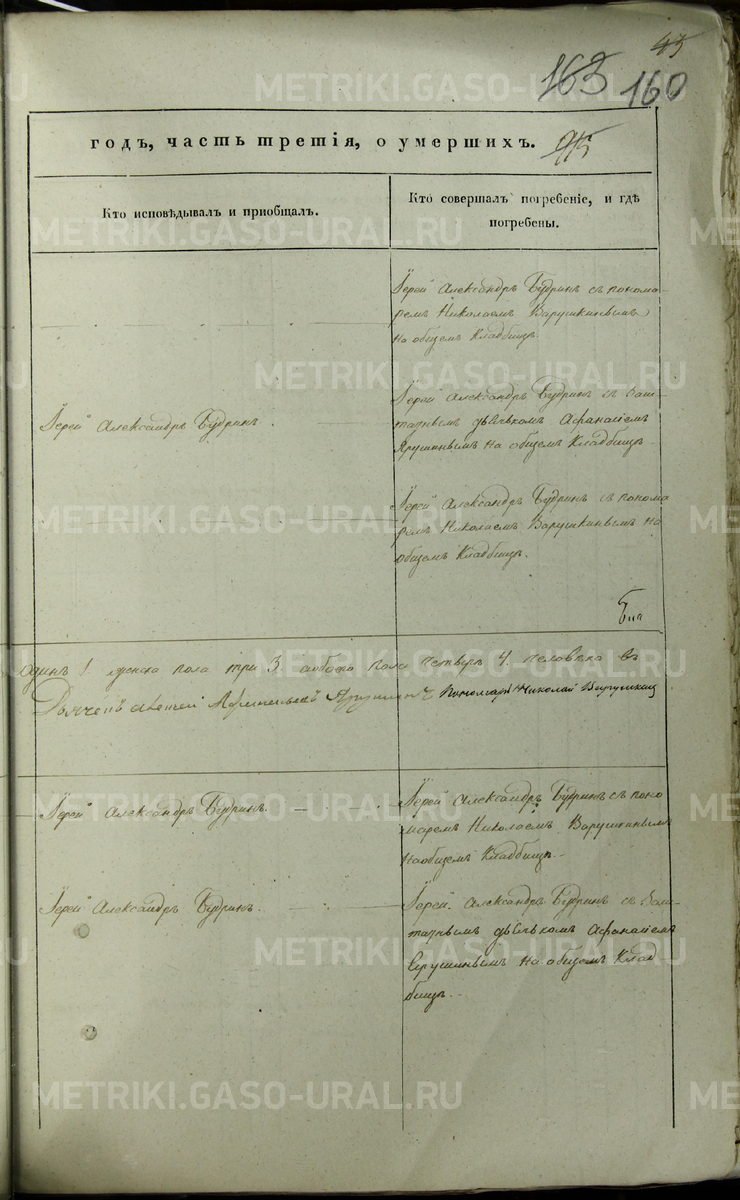 45
163 160
годъ, часть третія, о умершихъ.
Кто исповѣдывалъ и приобщалъ.
Кто совершалъ погребеніе, и гдѣ
погребены.
Іерей Александръ Будринъ съ понома-
ремъ Николаемъ Варушкинымъ
на общемъ Кладбищѣ.
Іерей Александръ Будринъ.
Іерей Александръ Будринъ съ Заш-
татнымъ дьячькомъ Афанасіемъ
Ярушинымъ на общемъ Кладбищѣ
Іерей Александръ Будринъ съ понома
ремъ Николаемъ Варушкинымъ на
общемъ Кладбищѣ.
одинъ 1 женска пола три 3. обоего пола четыре 4. человѣка въ
Пономарь Николай Варушкин
Іерей Александръ Будринъ.
Іерей Александръ Будринъ съ поно
маремъ Николаемъ Варушкинымъ
на общемъ Кладбищѣ.
Іерей Александръ Будринъ.
Іерей Александръ Будринъ съ Заш-
татнымъ дьячькомъ Афанасіемъ
Ерушинымъ на общемъ Клад
бищѣ.
METRIKI.GASO-URAL.RU